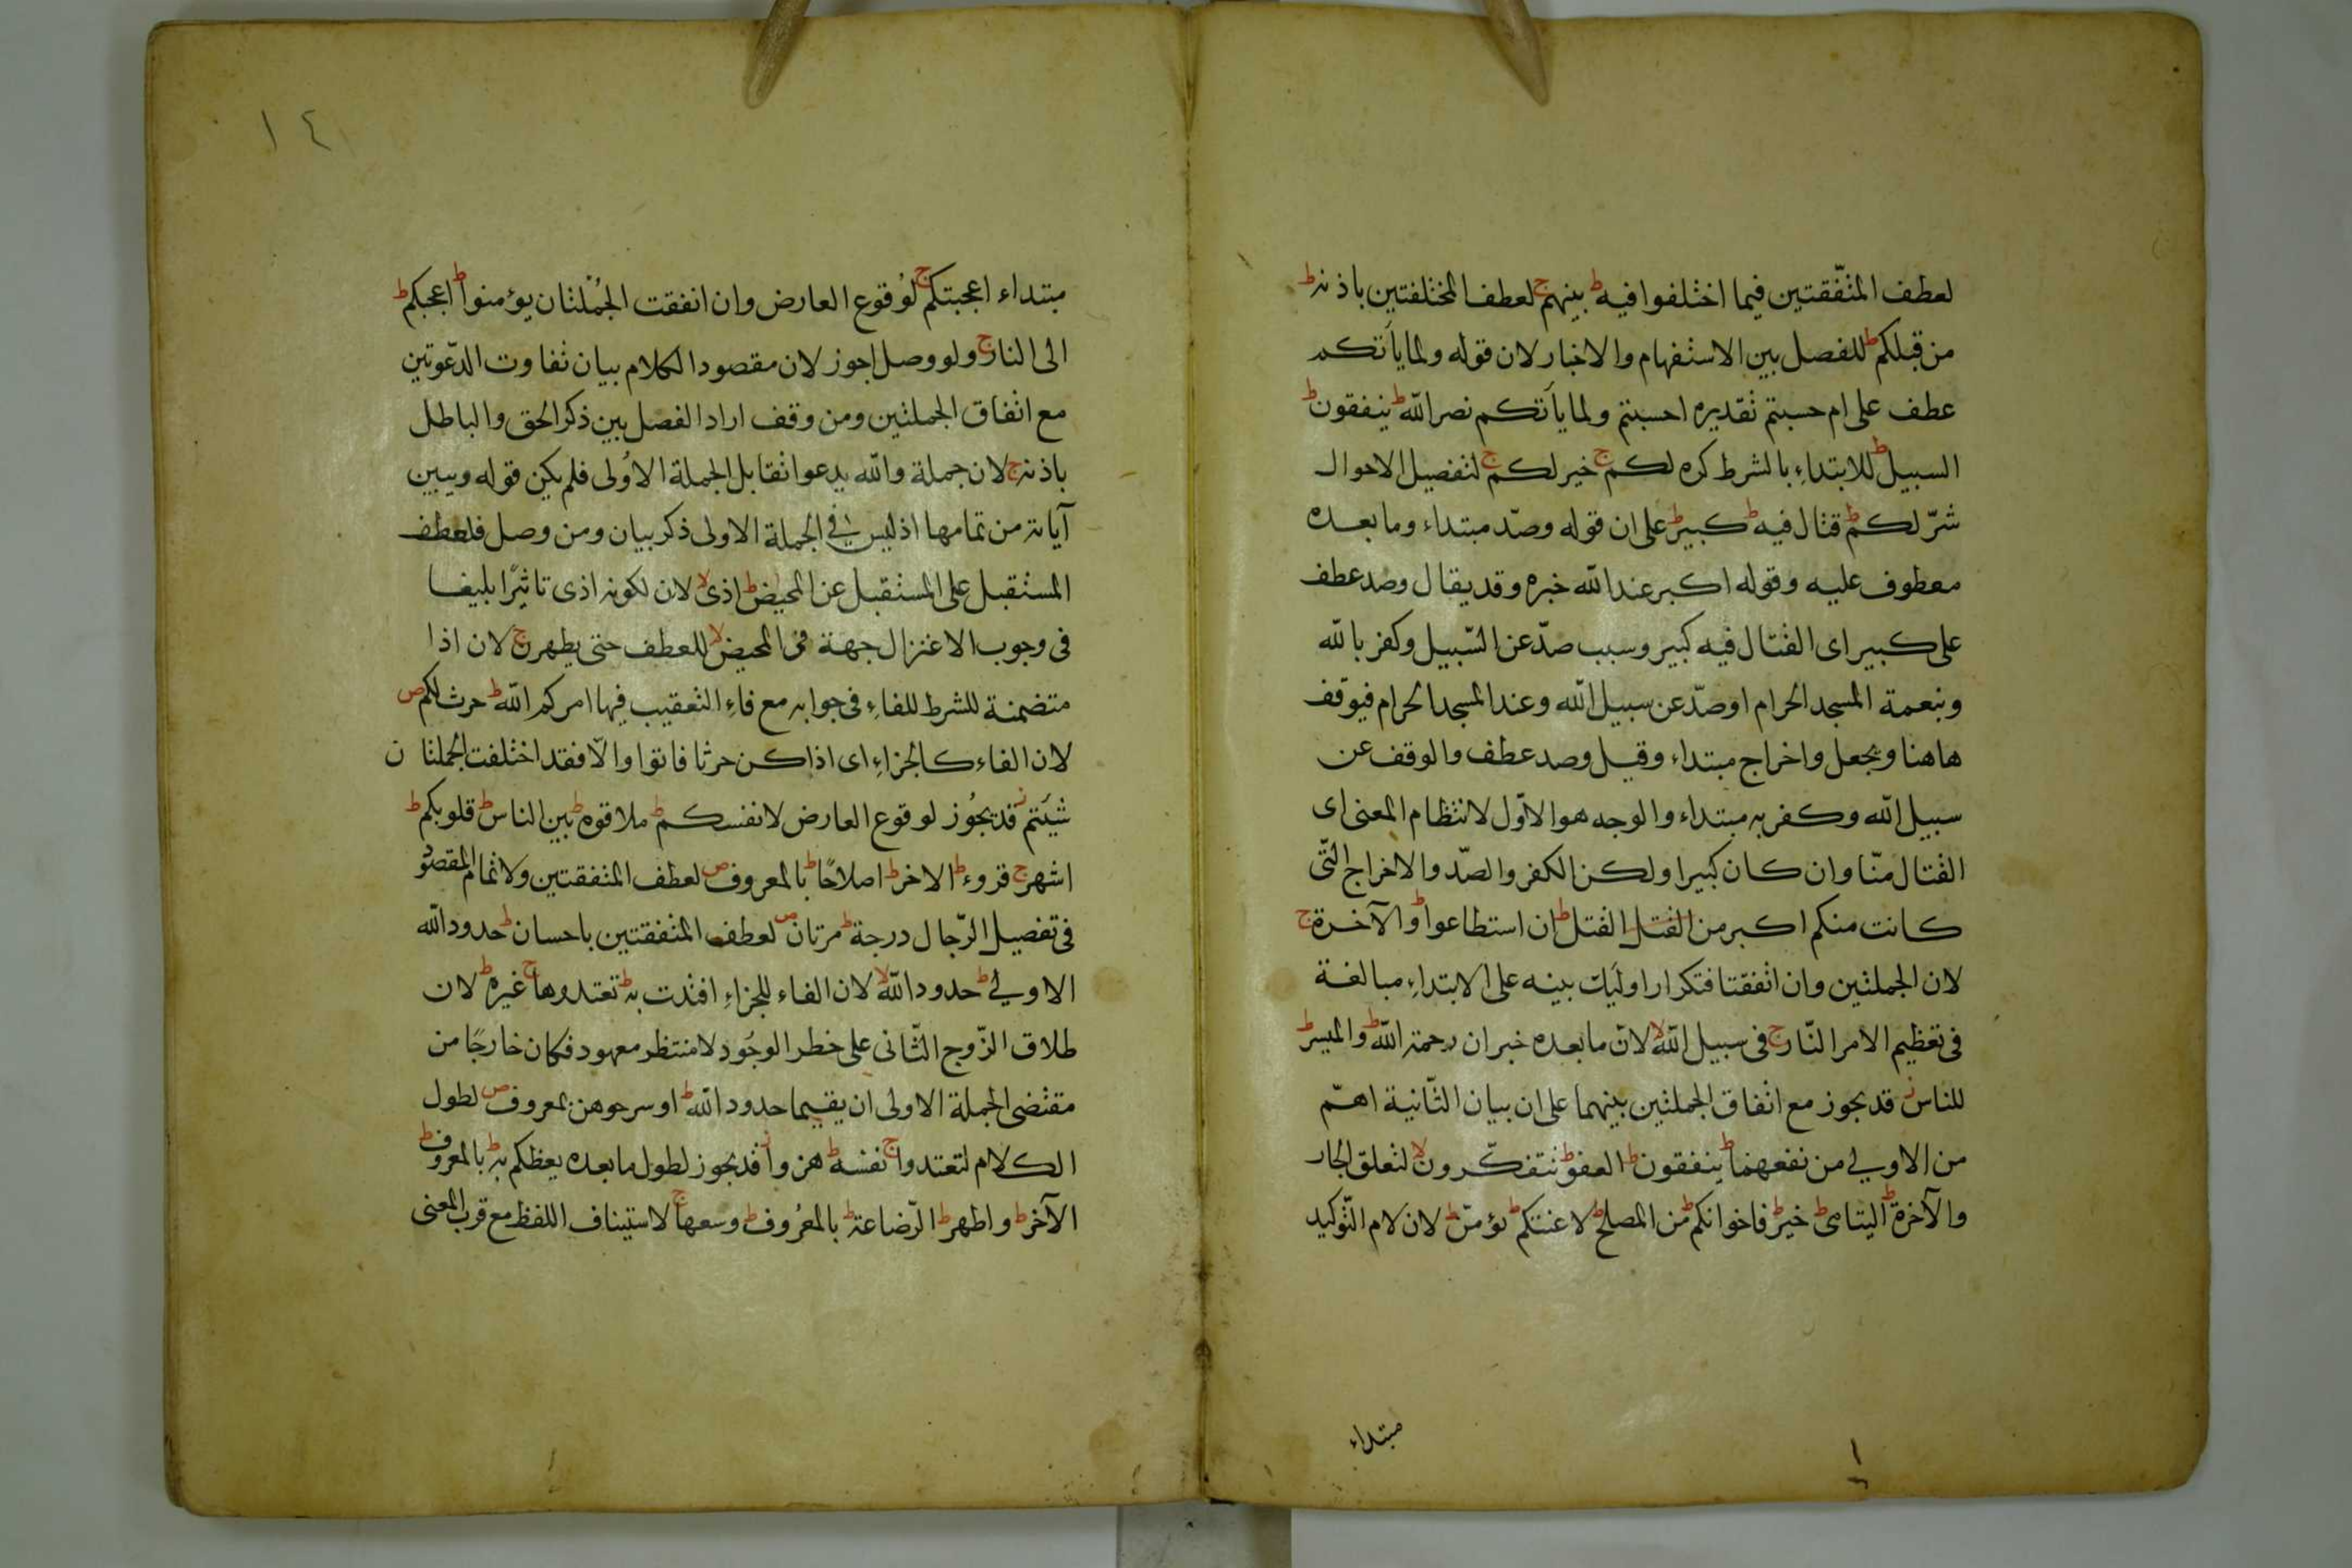 لعطف المتّفقتين فيما اختلفوا فيه ط بينهم ج لعطف المختلفتين باذنه ط
من قبلكم ط للفصل بين الاستفهام والاخبار لان قوله ولما يأتكم
عطف على ام حسبتم تقديره احسبتم ولما يأتكم نصر الله ط ينفقون ط
السبيل ط للابتداء بالشرط كره لكم ج خير لكم ج لتفصيل الاحوال
شرّ لكم ط قتال فيه ط كبير ط على ان قوله وصدّ مبتداء وما بعده
معطوف عليه وقوله اكبر عند الله خبره وقد يقال وصد عطف
على كبير اى القتال فيه كبير وسبب صدّ عن السّبيل وكفر بالله
وبنعمة المسجد الحرام او صدّ عن سبيل الله وعند المسجد الحرام فيوقف
هاهنا ويجعل واخراج مبتداء وقيل وصد عطف والوقف عن
سبيل الله وكفر به مبتداء والوجه هو الاوّل لانتظام المعنى اى
القتال منّا وان كان كبيرا ولكن الكفر والصدّ والاخراج التّى
كانت منكم اكبر من القتل القتل ط ان استطاعوا ط والآخرة ج
لان الجملتين وان اتفقتا فتكرار اوليك بينه على الابتداء مبالغة
فى تعظيم الامر النّار ج فى سبيل الله لا لانّ ما بعده خبر ان رحمة الله ط والميسر ط
للناس ز قد يجوز مع اتفاق الجملتين بينهما على ان بيان الثّانية اهمّ
من الاولى من نفعهما ط ينفقون ط العفو ط تتفكّرون لا لتعلق الجار
والآخرة ط اليتامى ط خير ط فاخوانكم ط من المصلح ط لاعنتكم ط يؤمنّ ط لان لام التّوكيد
مبتداء
١٤
مبتداء اعجبتكم ج لوقوع العارض وان اتفقت الجُملتان يؤمنوا ط اعجبكم ط
الى النار ج ولو وصل اجوز لان مقصود الكلام بيان تفاوت الدّعوتين
مع اتفاق الجملتين ومن وقف اراد الفصل بين ذكر الحق والباطل
باذنه ج لان جملة والله يدعوا تقابل الجملة الاُولى فلم يكن قوله ويبين
آياته من تمامها اذ ليس فى الجملة الاولى ذكر بيان ومن وصل فلعطف
المستقبل على المستقبل عن المحيض ط اذى لا لان لكونه اذى تاثيرًا بليغا
فى وجوب الاعتزال جهة فى المحيض لا للعطف حتى يطهرن ج لان اذا
متضمنة للشرط للفاء فى جوابه مع فاء التعقيب فيها امركم الله ط حرث لكم ص
لان الفاء كالجزاء اى اذا كن حرثا فاتوا والّا فقد اختلفت الجملتان
شيتم ز قد يجُوز لوقوع العارض لانفسكم ط ملاقوه ط بين الناس ط قلوبكم ط
اشهر ج قروء ط الاخر ط اصلاحًا ط بالمعروف ص لعطف المتفقتين ولاتمام المقصُو
فى تفصيل الرّجال درجة ط مرتان ص لعطف المتفقتين باحسان ط حدود الله
الاولى ط حدود الله لا لان الفاء للجزاء افتدت به ط تعتدوها ج غيره ط لان
طلاق الزّوج الثّانى على خطر الوجُود لا منتظر معهود فكان خارجًا من
مقتضى الجملة الاولى ان يقيما حدود الله ط او سرحوهن بمعروف ص لطول
الكلام لتعتدوا ج نفسه ط هزوا ز قد يجوز لطول ما بعده يعظكم به ط بالمعروف ط
الآخر ط واطهر ط الرّضاعة ط بالمعُروف ط وسعها ج لاستيناف اللفظ مع قرب المعنى